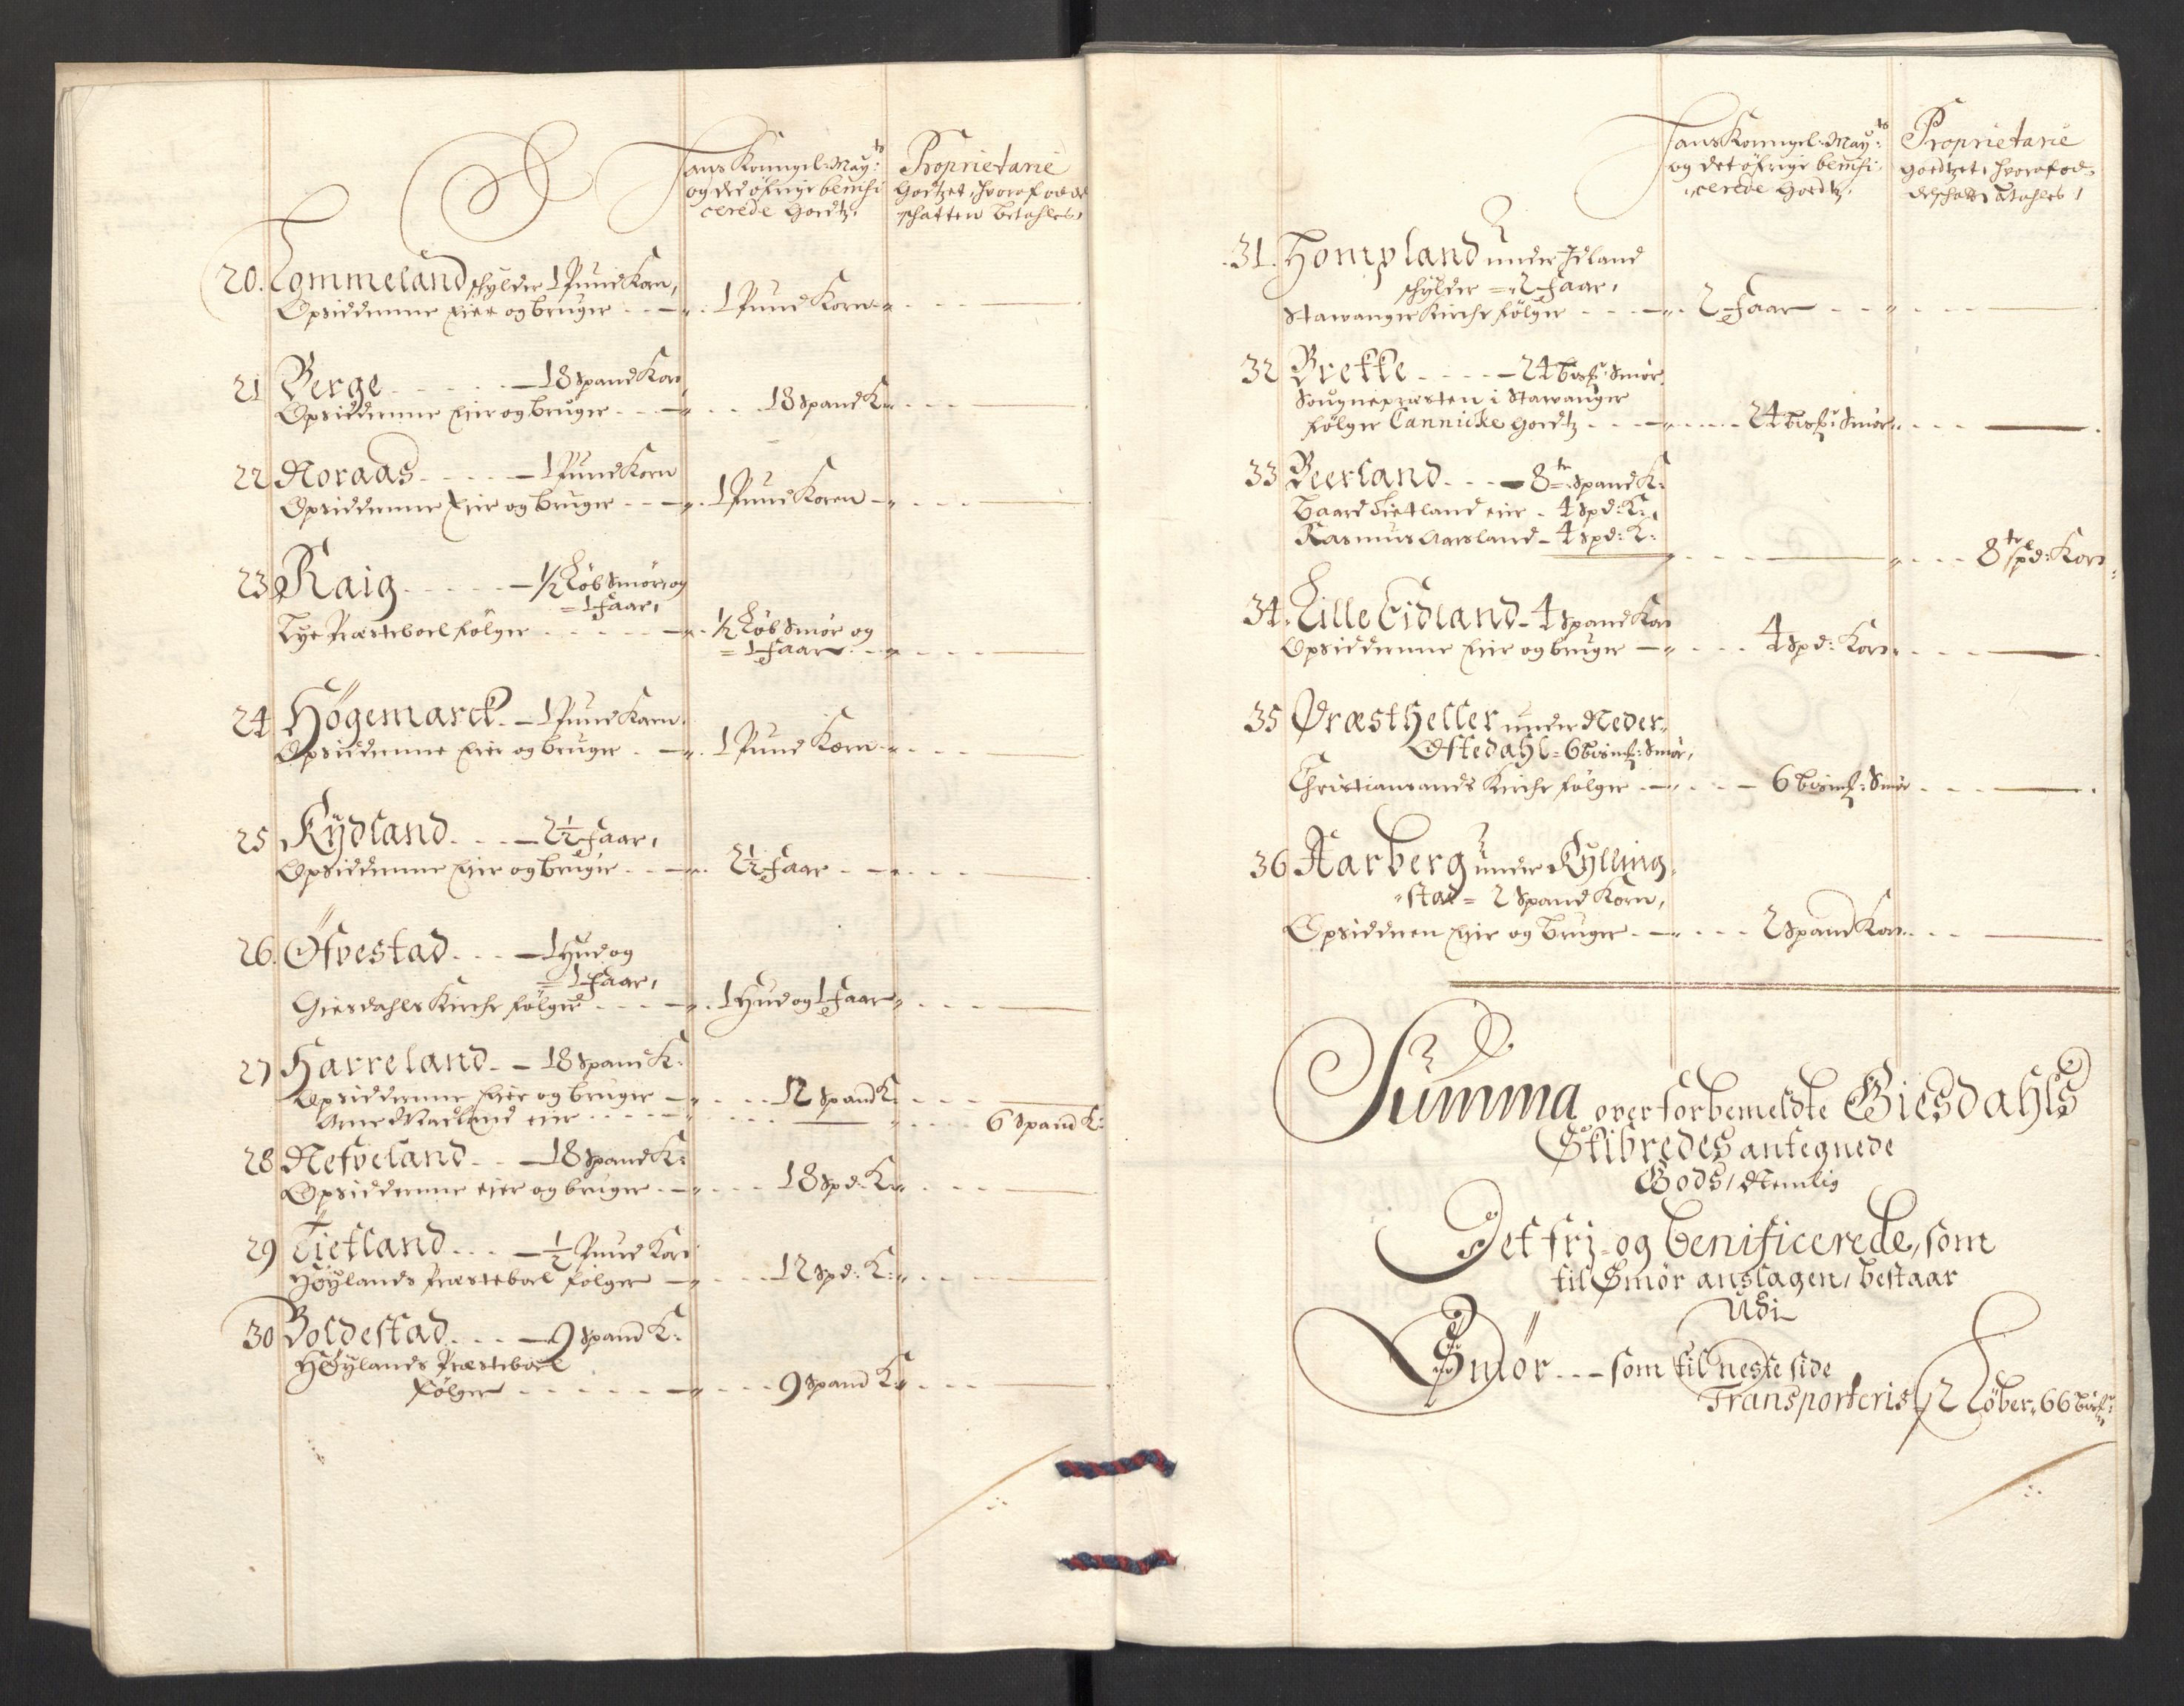 Hans Kongel: May:ts
og det øfrige benifi
cerede Goedtz.
Proprietarie
Goedtzet, hvoraf odel
schatten betahles,
20. Tommeland schylder 1 Pund Korn,
Opsidderne Eier og bruger - - - 1 Pund Korn
21 Berge - - - 18 Spand Korn
Opsidderne Eier og bruger - - - 18 Spand K:
22 Noraas - - - 1 Pund Korn
Opsidderne Eier og bruger - - - 1 Pund Koren
23 Raig - - - 1/2 Løb Smør, og
= 1 faar,
Lye Præsteboel følger - - - 1/2 Løb Smør og
= 1 faar
24 Högemarck - 1 Pund Korn
Opsidderne Eier og bruger - - - 1 Pund Korn
25 Kydland - - - 2 1/2 faar,
Opsidderne Eier og bruger - - - 2 1/2 faar
26. Øfvestad - - - 1 Hud og
= 1 faar,
Giesdahls Kirche følger - - - 1 Hud og 1 faar
27 Harreland - - 18 Spand K:
Opsidderne Eier og bruger - - - 12 Spand K:
eier - - - 6 Spand K:
28 Nefveland - - 18 Spand K:
Opsidderne eier og bruger - - - 18 Spd: K:
29 Tietland - - - 1/2 Pund Korn
Høylands Præsteboel følger - - - 12 Spd: K:
30 Boldestad - - - 9 Spand K:
Høylands Præsteboel
følger - - - 9 Spand K:
Hans Kongel: May:ts
og det øfrige benifi
cerede Goedtz.
Proprietarie
Goedtzet, hvoraf od-
delschatt betahles,
31. Hompland under Idland
schylder = 2 faar,
Stawanger Kirche følger - - - 2 faar
32 Brekke - - - 24 bismr: Smør
Sougnepræsten i Stawanger
følger Cannicke Goedtz - - - 24 bismr: Smør
33 Beerland - - - 8te Spand K:
Baard Tietland eier - 4 Spd: K:
Rasmus Aarsland - 4 Spd: K:
8te spd: Korn
34. Lille Eidland - 4 Spand Korn
Opsidderne Eier og bruger - - - 4 Spd: Korn
35 Øræstheller under Neder-
Oftedahl = 6 bismr: Smør,
Christiansands Kirche følger - - - 6 bismr: Smør
36 Aarberg under Kylling-
stad = 2 Spand Korn,
Opsidderen Eier og bruger - - - 2 Spand Korn
Summa over forbemeldte Giesdahls
Skibredes antegnede
Gods, Nemlig
Det frj- og benificerede, som
til Smør anslagen, bestaar
Udi
Smør - - - som til neste side
Transporteris 2 Løber, 66 bismr: